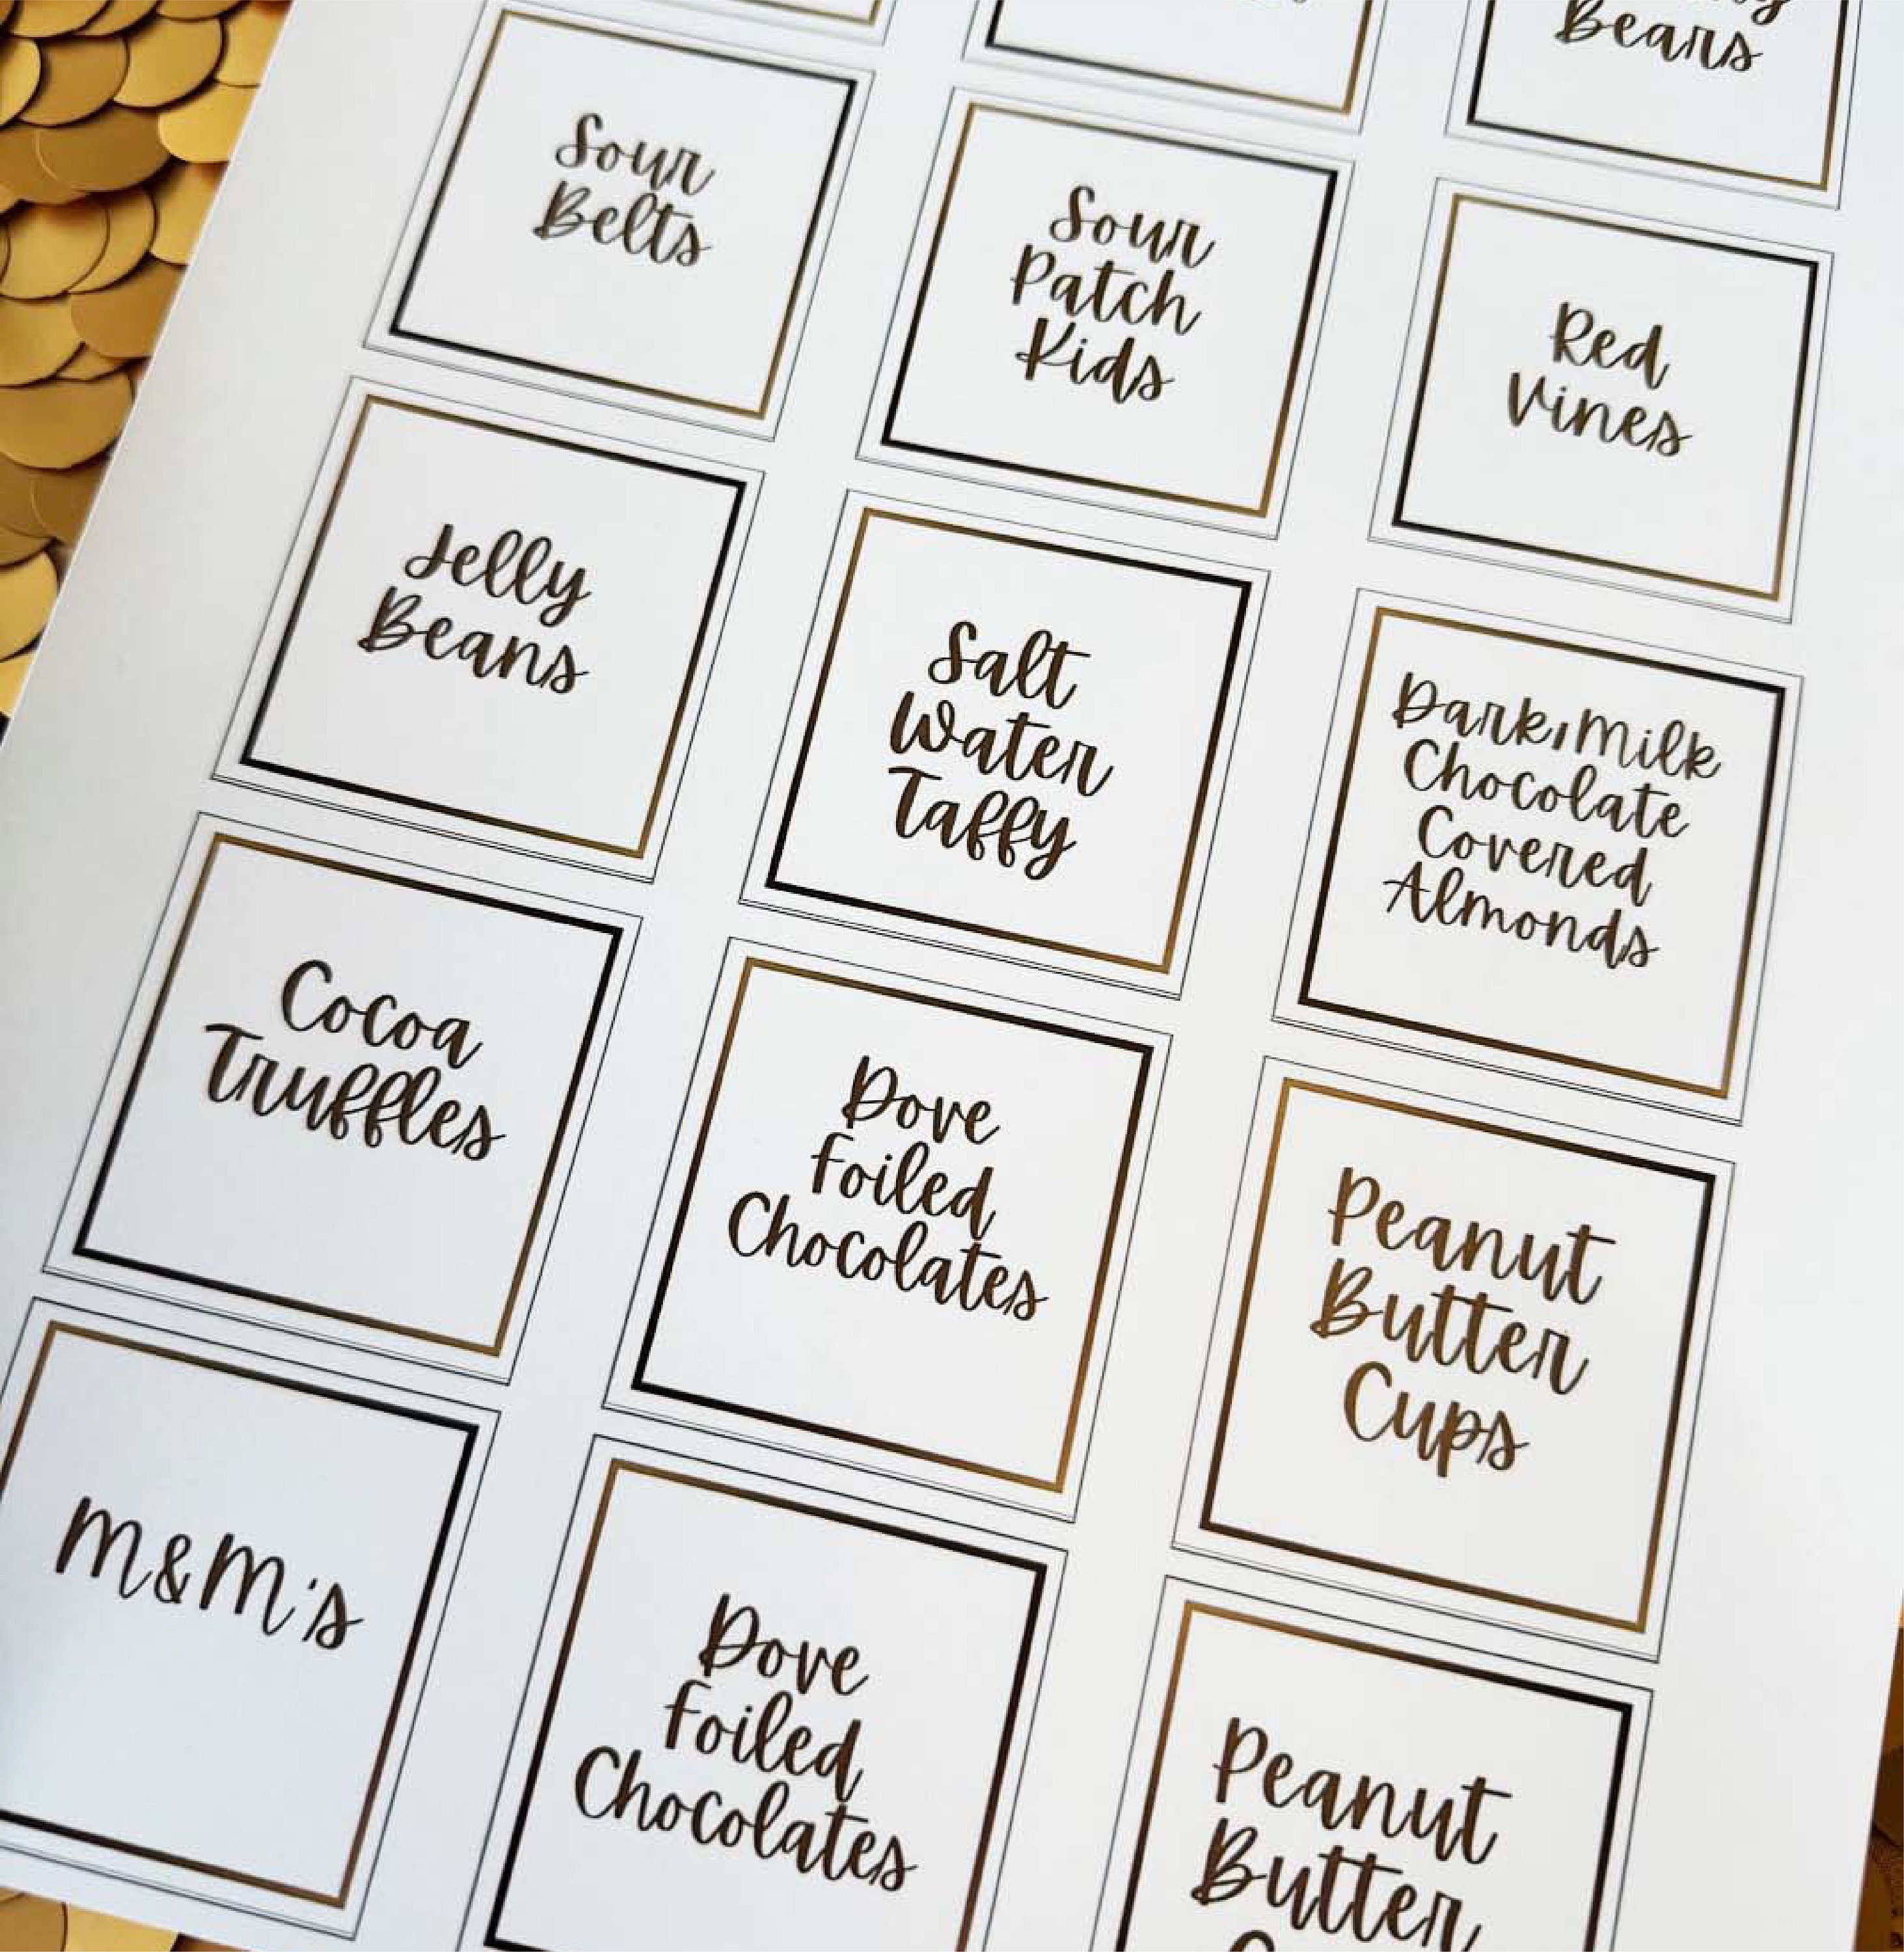 Bears
Sour
Belts
Sour
Patch
Kids
Red
Vines
Jelly
Beans
Salt
Water
Taffy
Dark, Milk
Chocolate
Covered
Almonds
Cocoa
Truffles
Dove
Foiled
Chocolates
Peanut
Butter
Cups
M&M's
Dove
Foiled
Chocolates
Peanut
Butter